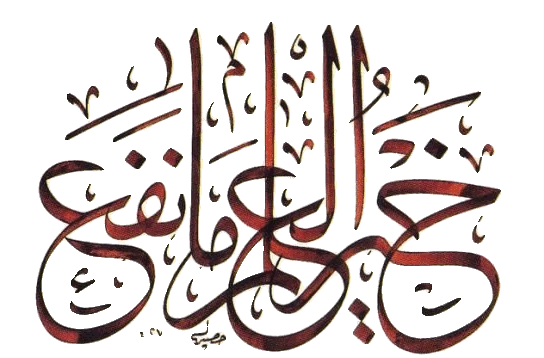 خير العلم ما نفع